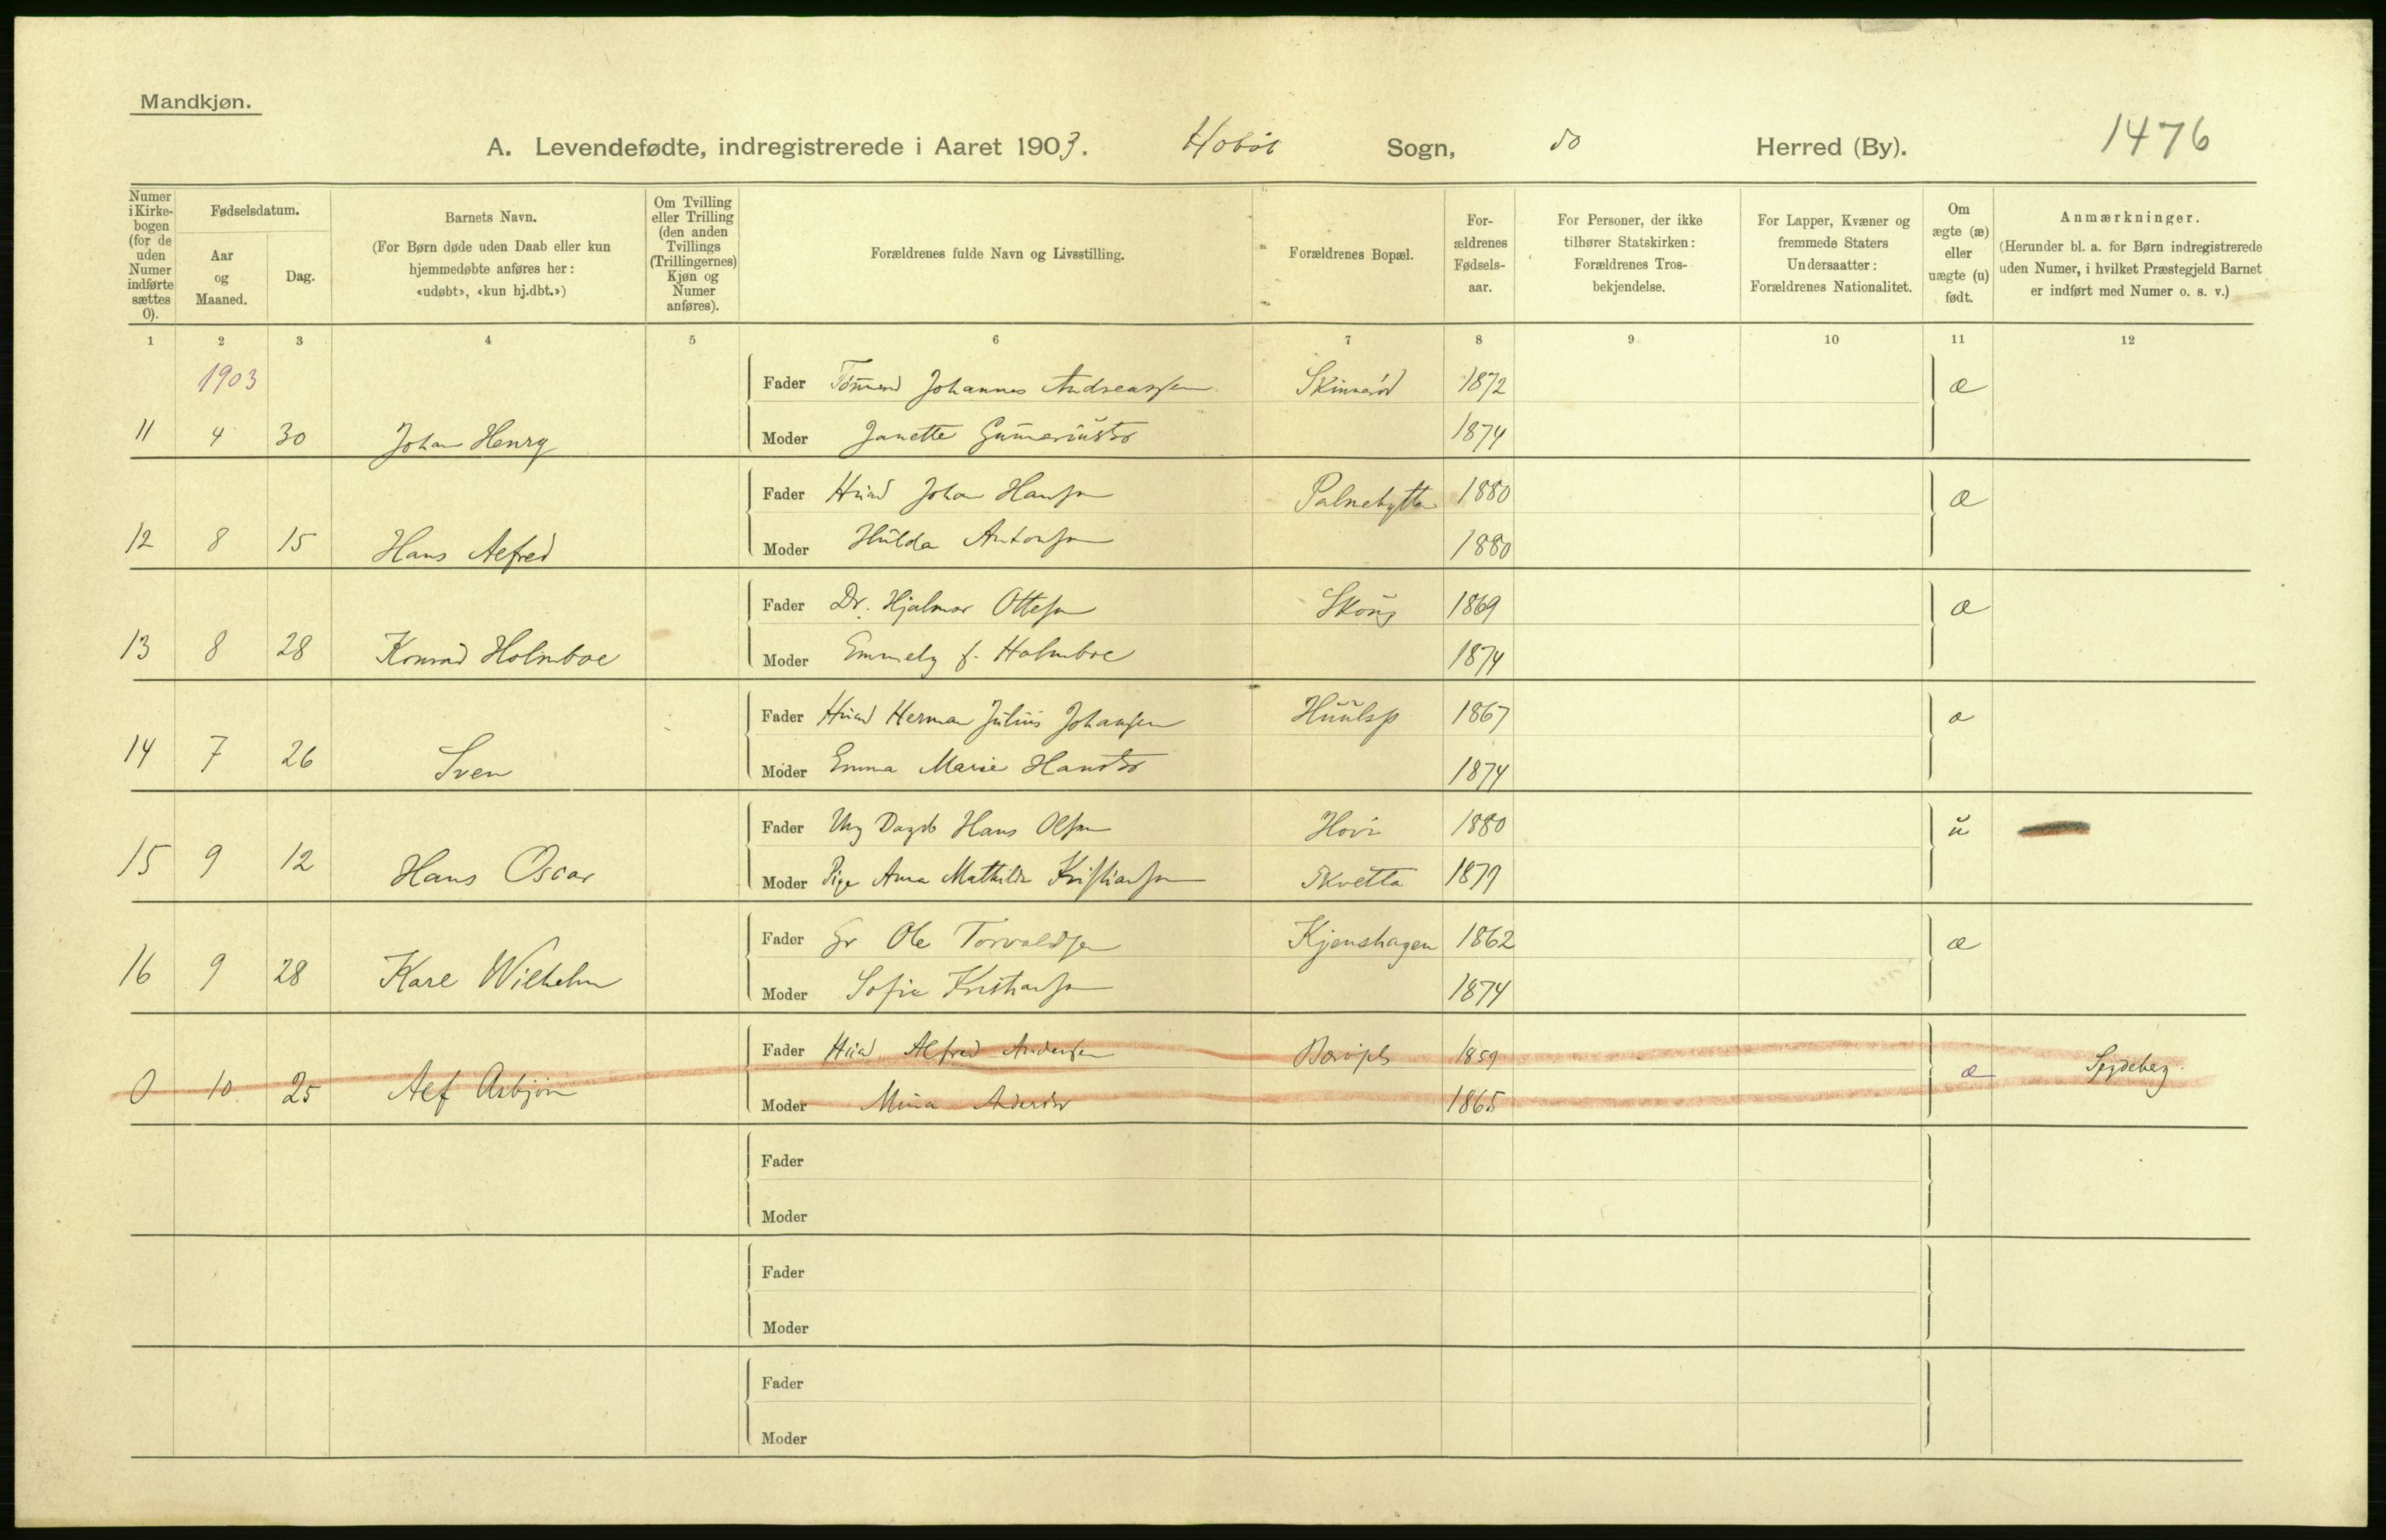 Mandkjøn.
A. Levendefødte, indregistrerede i Aaret 1903. Hobøl Sogn, do Herred (By). 1476
Numer i Kirke-bogen (for de uden Numer indførte sættes 0).
Fødselsdatum.
Aar og Maaned.
Dag.
Barnets Navn.
(For Børn døde uden Daab eller kun hjemmedøbte anføres her: «udøbt», «kun hj.dbt.»)
Om Tvilling eller Trilling (den anden Tvillings (Trillingernes) Kjøn og Numer anføres).
Forældrenes fulde Navn og Livsstilling.
Forældrenes Bopæl.
For-ældrenes Fødsels-aar.
For Personer, der ikke tilhører Statskirken: Forældrenes Tros-bekjendelse.
For Lapper, Kvæner og fremmede Staters Undersaatter: Forældrenes Nationalitet.
Om ægte (æ) eller uægte (u) født.
Anmærkninger.
(Herunder bl. a. for Børn indregistrerede uden Numer, i hvilket Præstegjeld Barnet er indført med Numer o. s. v.)
1 2 3 4 5 6 7 8 9 10 11 12
1903
Fader Tømmermd Johannes Andreassen Skinnerød 1872 æ
11 4 30 Johan Henry Moder Janette Gunneriusdtr 1874
Fader Husmd Johan Hansen 1880 æ
12 8 15 Hans Alfred Moder Hulda Antonsen 1880
Fader Dr. Hjalmar Ottesen Skoug 1869 æ
13 8 28 Konrad Holmboe Moder Emmely f. Holmboe 1874
Fader Husmd Herman Julius Johansen 1867 æ
14 7 26 Sven Moder Emma Marie Hansdtr 1874
Fader Ung Hans Olsen 1880 u
15 9 12 Hans Oscar Moder Pige Anna Mathilde Kristiansen Skvetta 1879
Fader Gr Ole Torvaldsen Kjenshagen 1862 æ
16 9 28 Karl Wilhelm Moder Sofie Kristiansen 1874
Fader Husmd Alfred Andersen 1859 æ Spydeberg.
0 10 25 Alf Asbjørn Moder Mina Andersdtr 1865
Fader
Moder
Fader
Moder
Fader
Moder